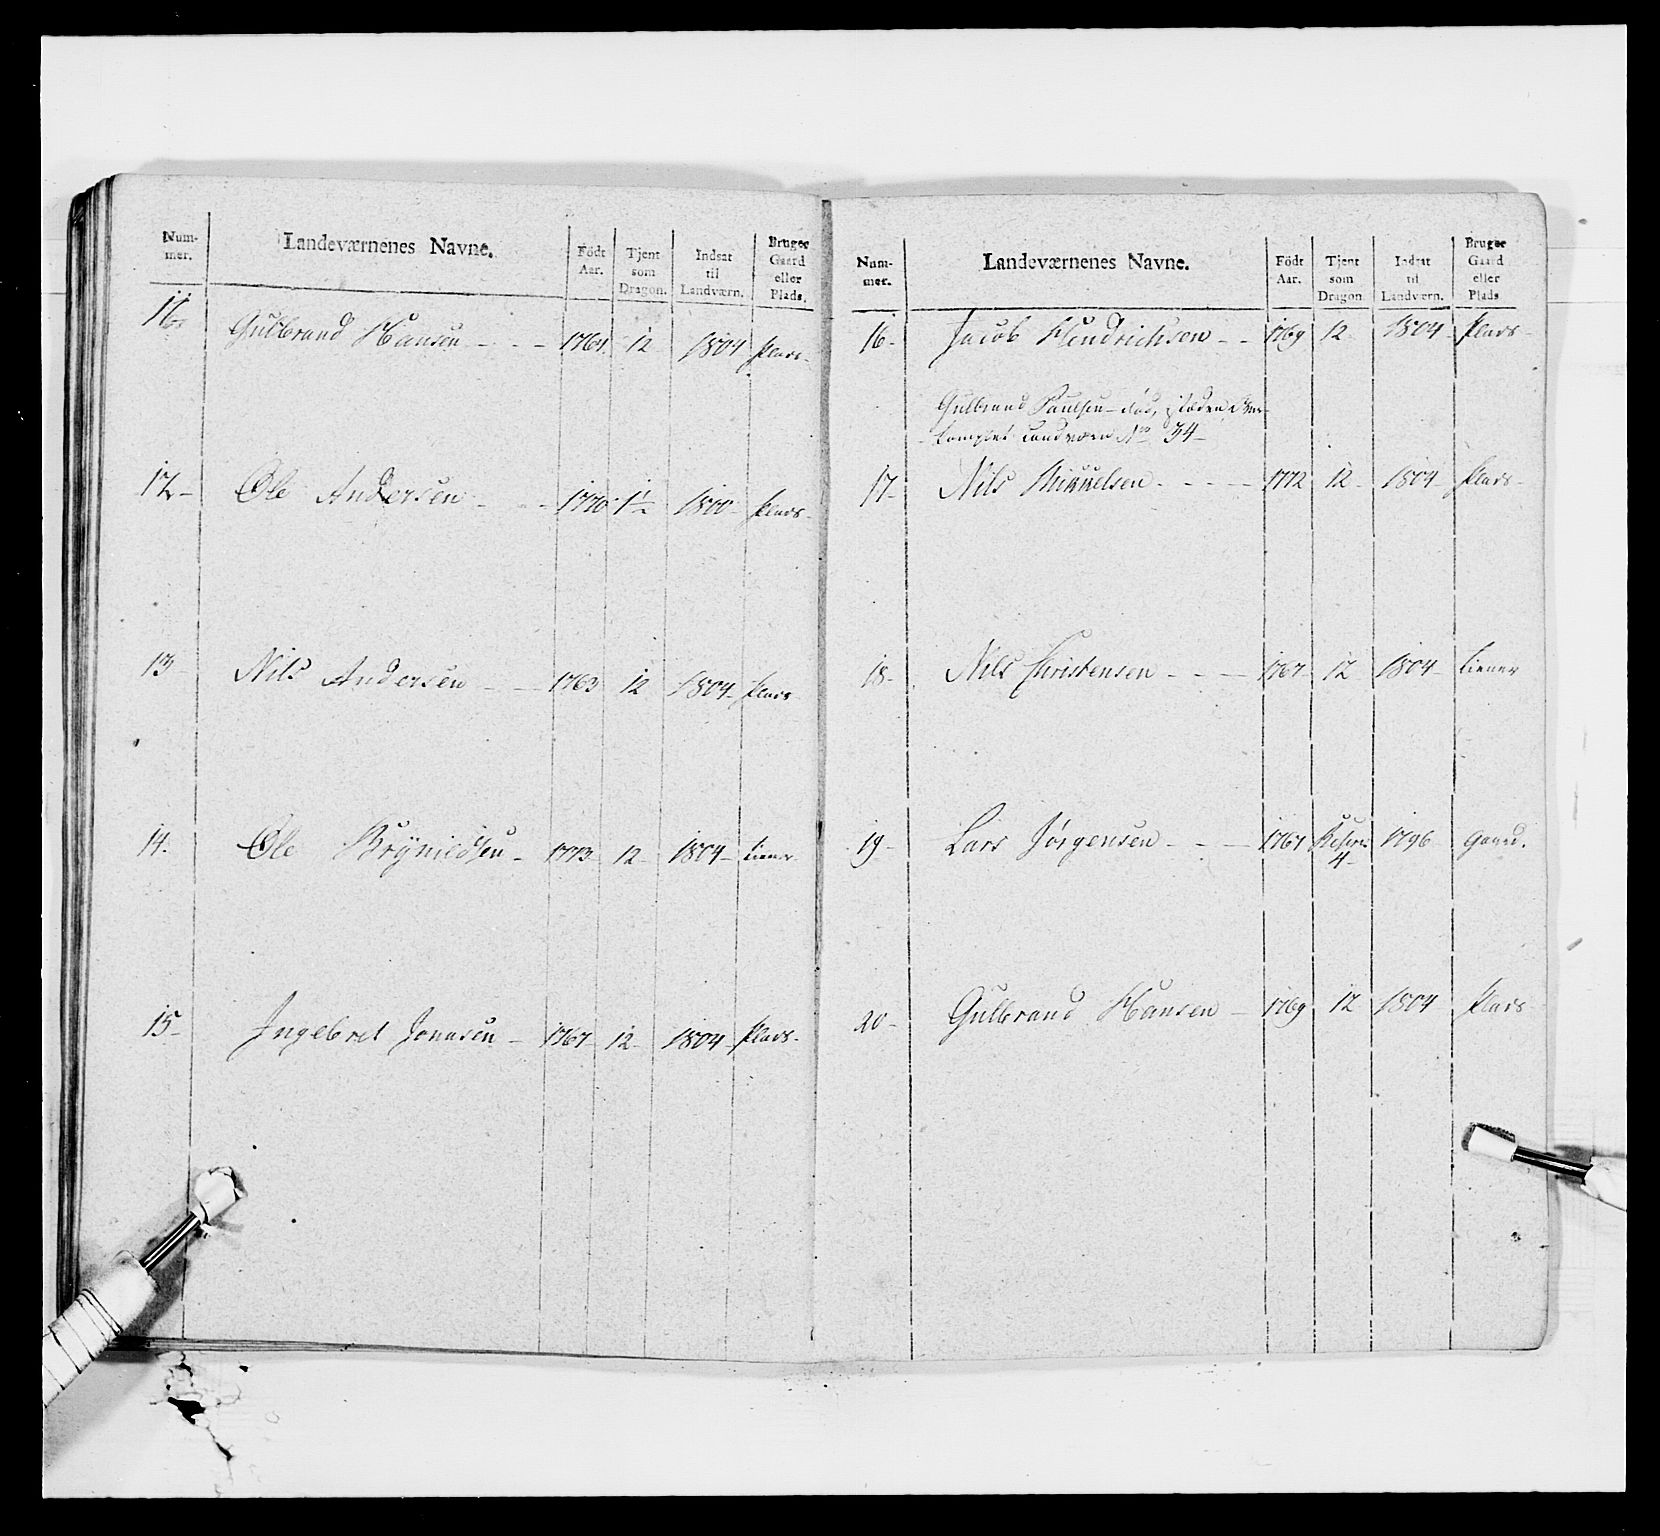 Num-
mer.
Landeværnenes Navne.
Födt
Aar.
Tjent
som
Dragon.
Indsat
til
Landværn.
Bruger
Gaard
eller
Plads.
11. Gulbrand Hansen - - - 1764. 12 1804 Plads-
12- Ole Andersen - - - 1770 1800- Plads-
13- Nils Andersen - - 1763 12 1804- Plads
14. Ole Brÿnildsen - 1773- 12- 1804- tiener
15- Ingebret Jonasen - 1767- 12- 1804- Plads-
Num-
mer.
Landeværnenes Navne.
Födt
Aar.
Tjent
som
Dragon.
Indsat
til
Landværn.
Bruger
Gaard
eller
Plads
16- Jacob Hendrichsen - - 1769 12 1804- Plads-
Gulbrand Paulsen - død, istæden Over-
komplet Landværn No 34-
17- Nils - - - - 1772 12- 1804 Plads-
18- Nils Christensen - - - 1767- 12 1804- tiener
19- Lars Jørgensen - - - 1767 4- 1796 Gaard.
20- Gulbrand Hansen - 1769 12 1804 Plads